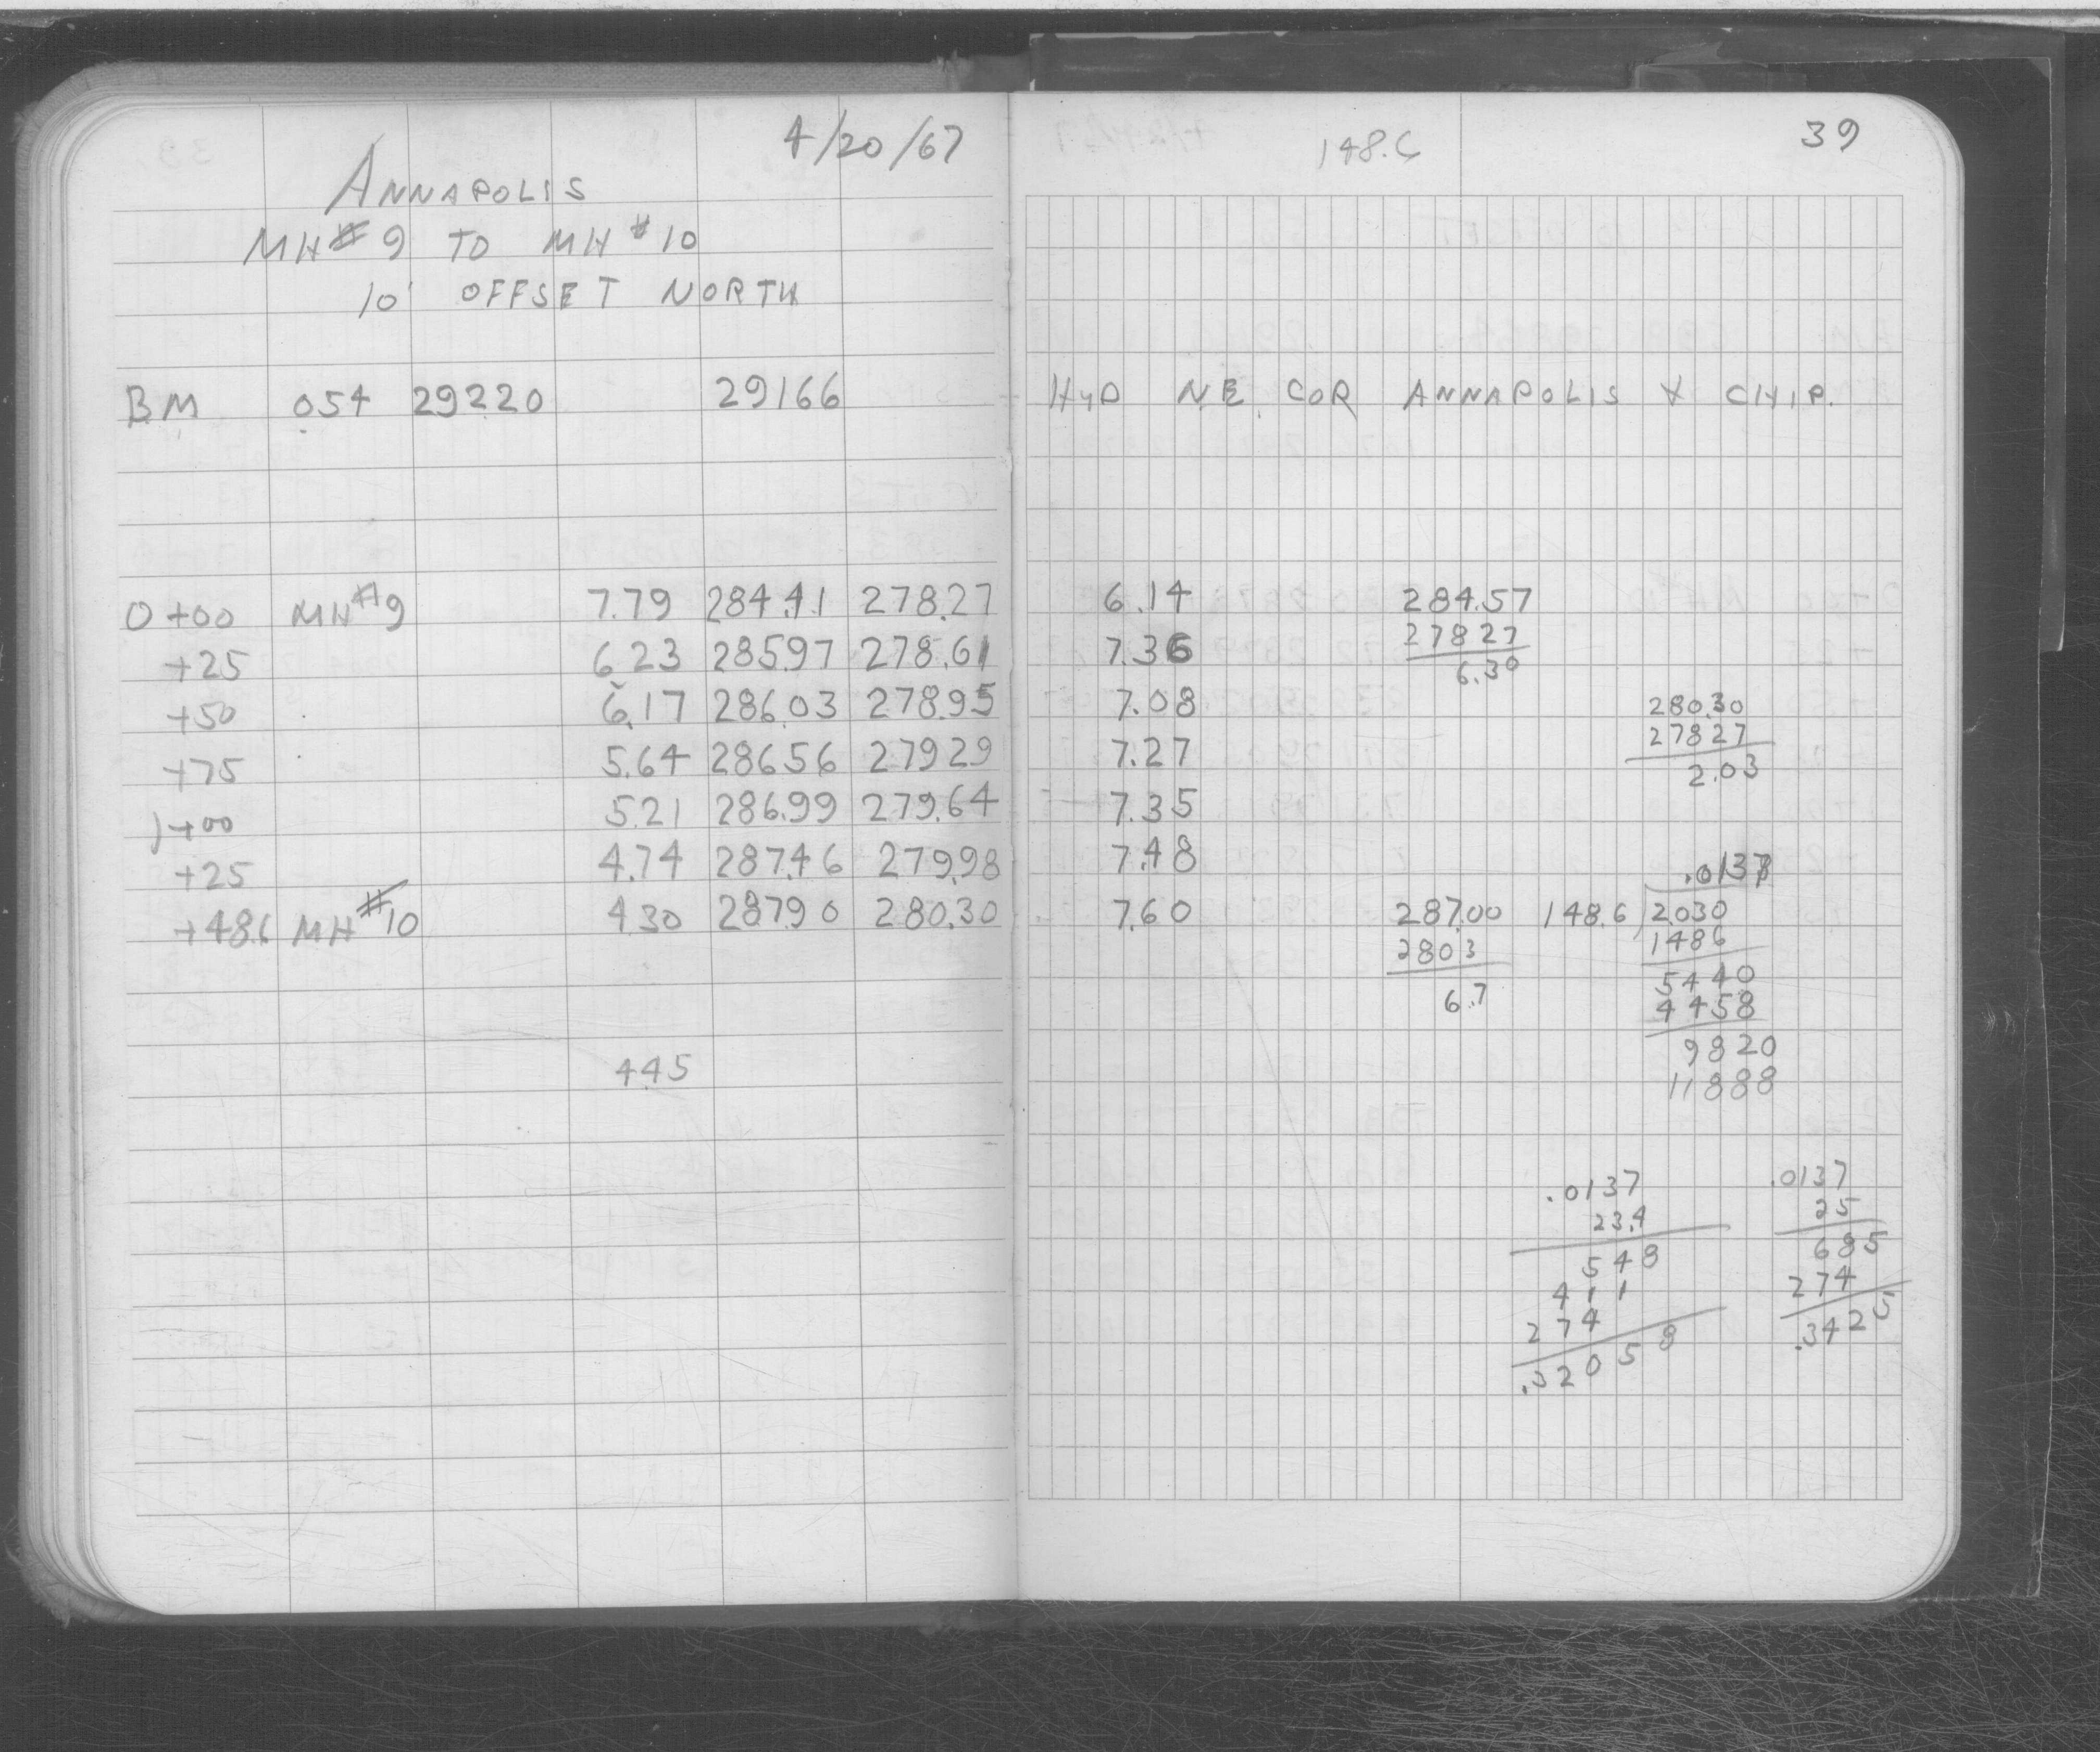 4/20/67
ANNAPOLIS
MH# 9 TO MH #10
10' OFFSET NORTH
BM 0.54 292.20 291.66
0+00 MH#9 7.79 284.41 278.27
+25 6.23 285.97 278.61
+50 6.17 286.03 278.95
+75 5.64 286.56 279.29
1+00 5.21 286.99 279.64
+25 4.74 287.46 279.98
+48.6 MH#10 4.30 287.90 280.30
4.45
148.6
39
HYD N.E. COR ANNAPOLIS & CHIP.
6.14 284.57
7.36 278.27
6.30
7.08 280.30
278.27
7.27 2.03
7.35
7.48 .0137
7.60 287.00 148.6 2.030
280.3 1486
6.7 5440
4458
9820
11888
.0137 .0137
23.4 25
548 685
411 274
274 .3425
.32058